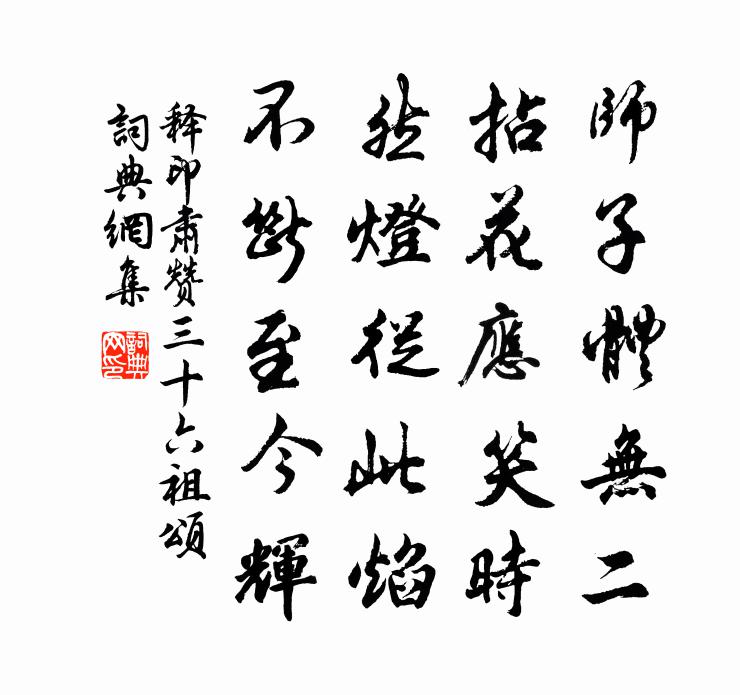 師子體無二
拈花應笑時
然燈從此焰
不斷至今輝
释印肅赞三十六祖頌
詞典網集
詞典网印